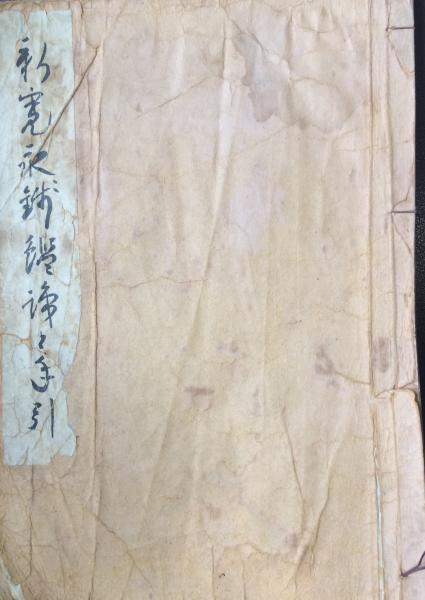 新寛永銭鑑識と手引